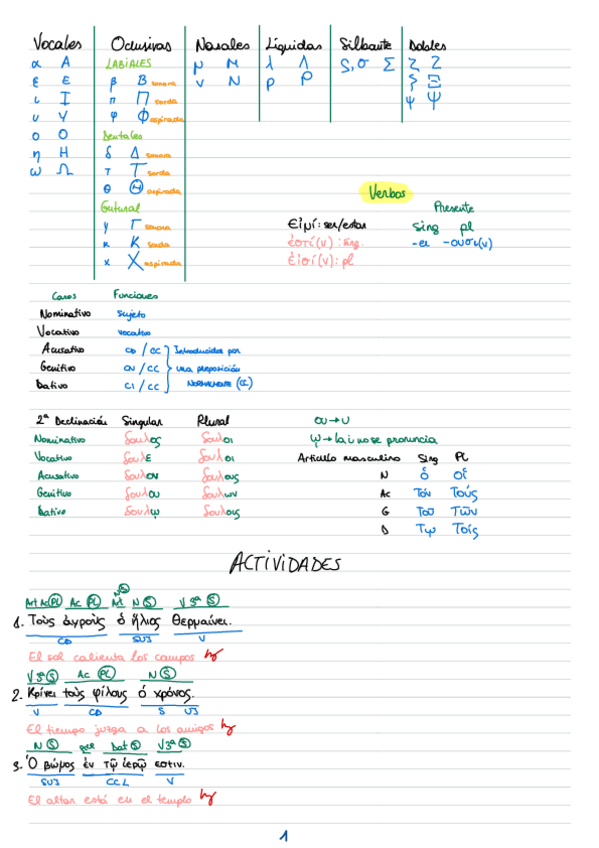 Vocales Oclusivas Nasales Líquidas Silbante Dobles
α Α LABIALES μ Μ λ Λ ς, σ Σ ζ Ζ
ε Ε β Β sonora ν Ν ρ Ρ ξ Ξ
ι Ι π Π sorda ψ Ψ
υ Υ φ Φ aspirada
ο Ο Dentales
η Η δ Δ sonora
ω Ω τ Τ sorda
θ Θ aspirada
Verbos
Gutural Presente
γ Γ sonora εἰμί: ser/estar sing pl
κ Κ sorda ἐστί(ν): sing. -ει -ουσι(ν)
χ Χ aspirada εἰσί(ν): pl
Casos Funciones
Nominativo sujeto
Vocativo vocativo
Acusativo CD / CC Introducidos por
Genitivo CN / CC una preposición
Dativo CI / CC NORMALMENTE (CC)
2ª Declinación Singular Plural ου→υ
Nominativo δουλος δουλοι ῳ→la i no se pronuncia
Vocativo δουλε δουλοι Artículo masculino Sing PL
Acusativo δουλον δουλους N ὁ οἱ
Genitivo δουλου δουλων Ac Τόν Τούς
Dativo δουλῳ δουλοις G Τοῦ Τῶν
D Τῳ Τοῖς
ACTIVIDADES
N(S)
Art Ac(PL) Ac (PL) Art N (S) V 3ª (S)
1. Τοὺς ἀγροὺς ὁ ἥλιος θερμαίνει.
CD SUJ V
El sol calienta los campos
V3ª(S) Ac (PL) N(S)
2. Κρίνει τοὺς φίλους ὁ χρόνος.
V CD SUJ
El tiempo juzga a los amigos
N (S) pre Dat(S) V3ª(S)
3. Ὁ βωμος ἐν τῷ ἱερῷ εστιν.
SUJ CCL V
El altar está en el templo
1